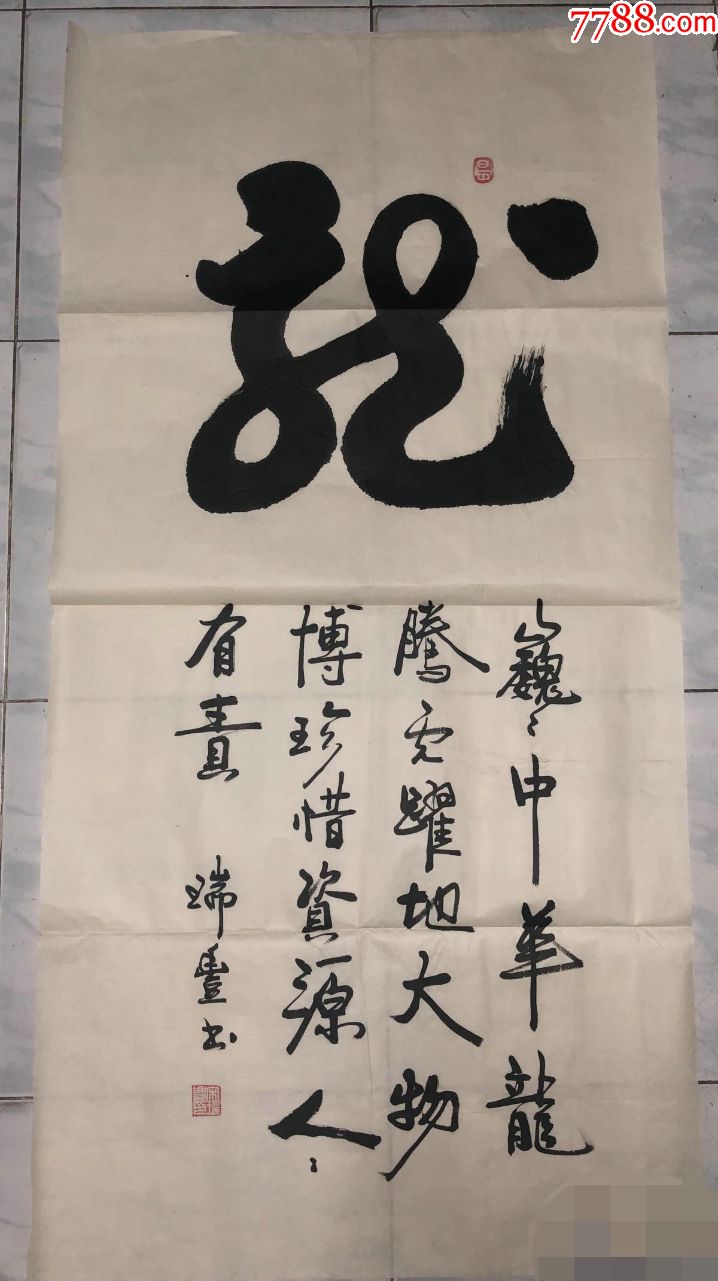 7788.com
龙
巍〻中華龍
騰虎躍地大物
博珍惜資源人〻
有責
瑞豐书